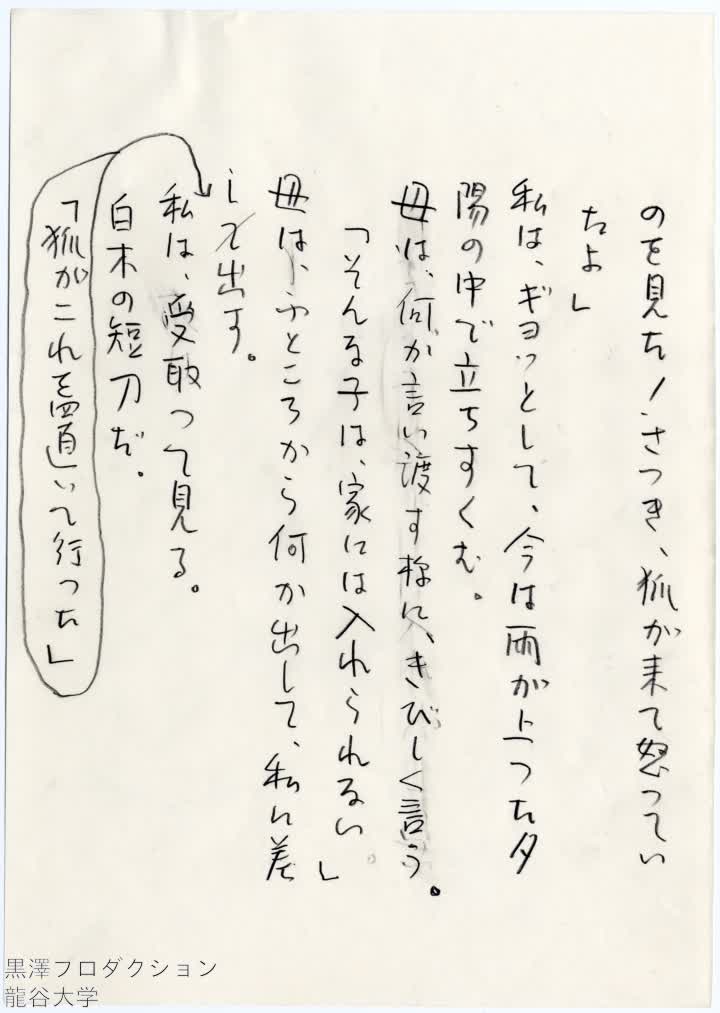 のを見た！さつき、狐が来て怒ってい
たよ」
私は、ギヨッとして、今は雨が上った夕
陽の中で立ちすくむ。
母は、何か言い渡す様に、きびしく言う。
「そんな子は、家には入れられない。」
母は、ふところから何か出して、私に差
し出す。
私は、受取って見る。
白木の短刀だ。
「狐がこれを置いて行った」
黒澤プロダクション
龍谷大学